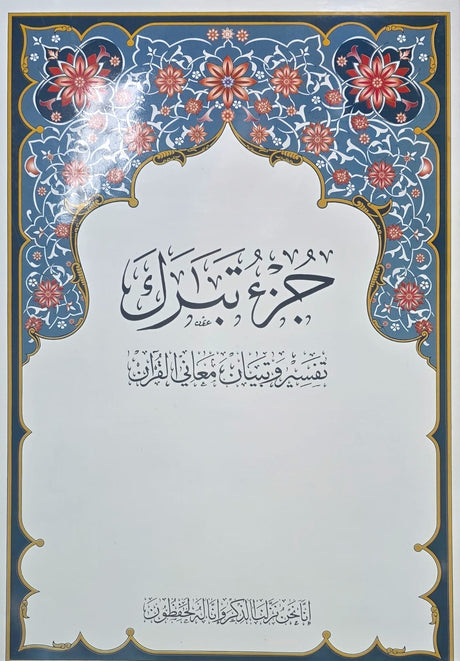 جُزْءُ تَبَٰرَكَ
تفسير وتبيان معاني القرآن
إنا نحن نزلنا الذكر وإنا له لحفظون